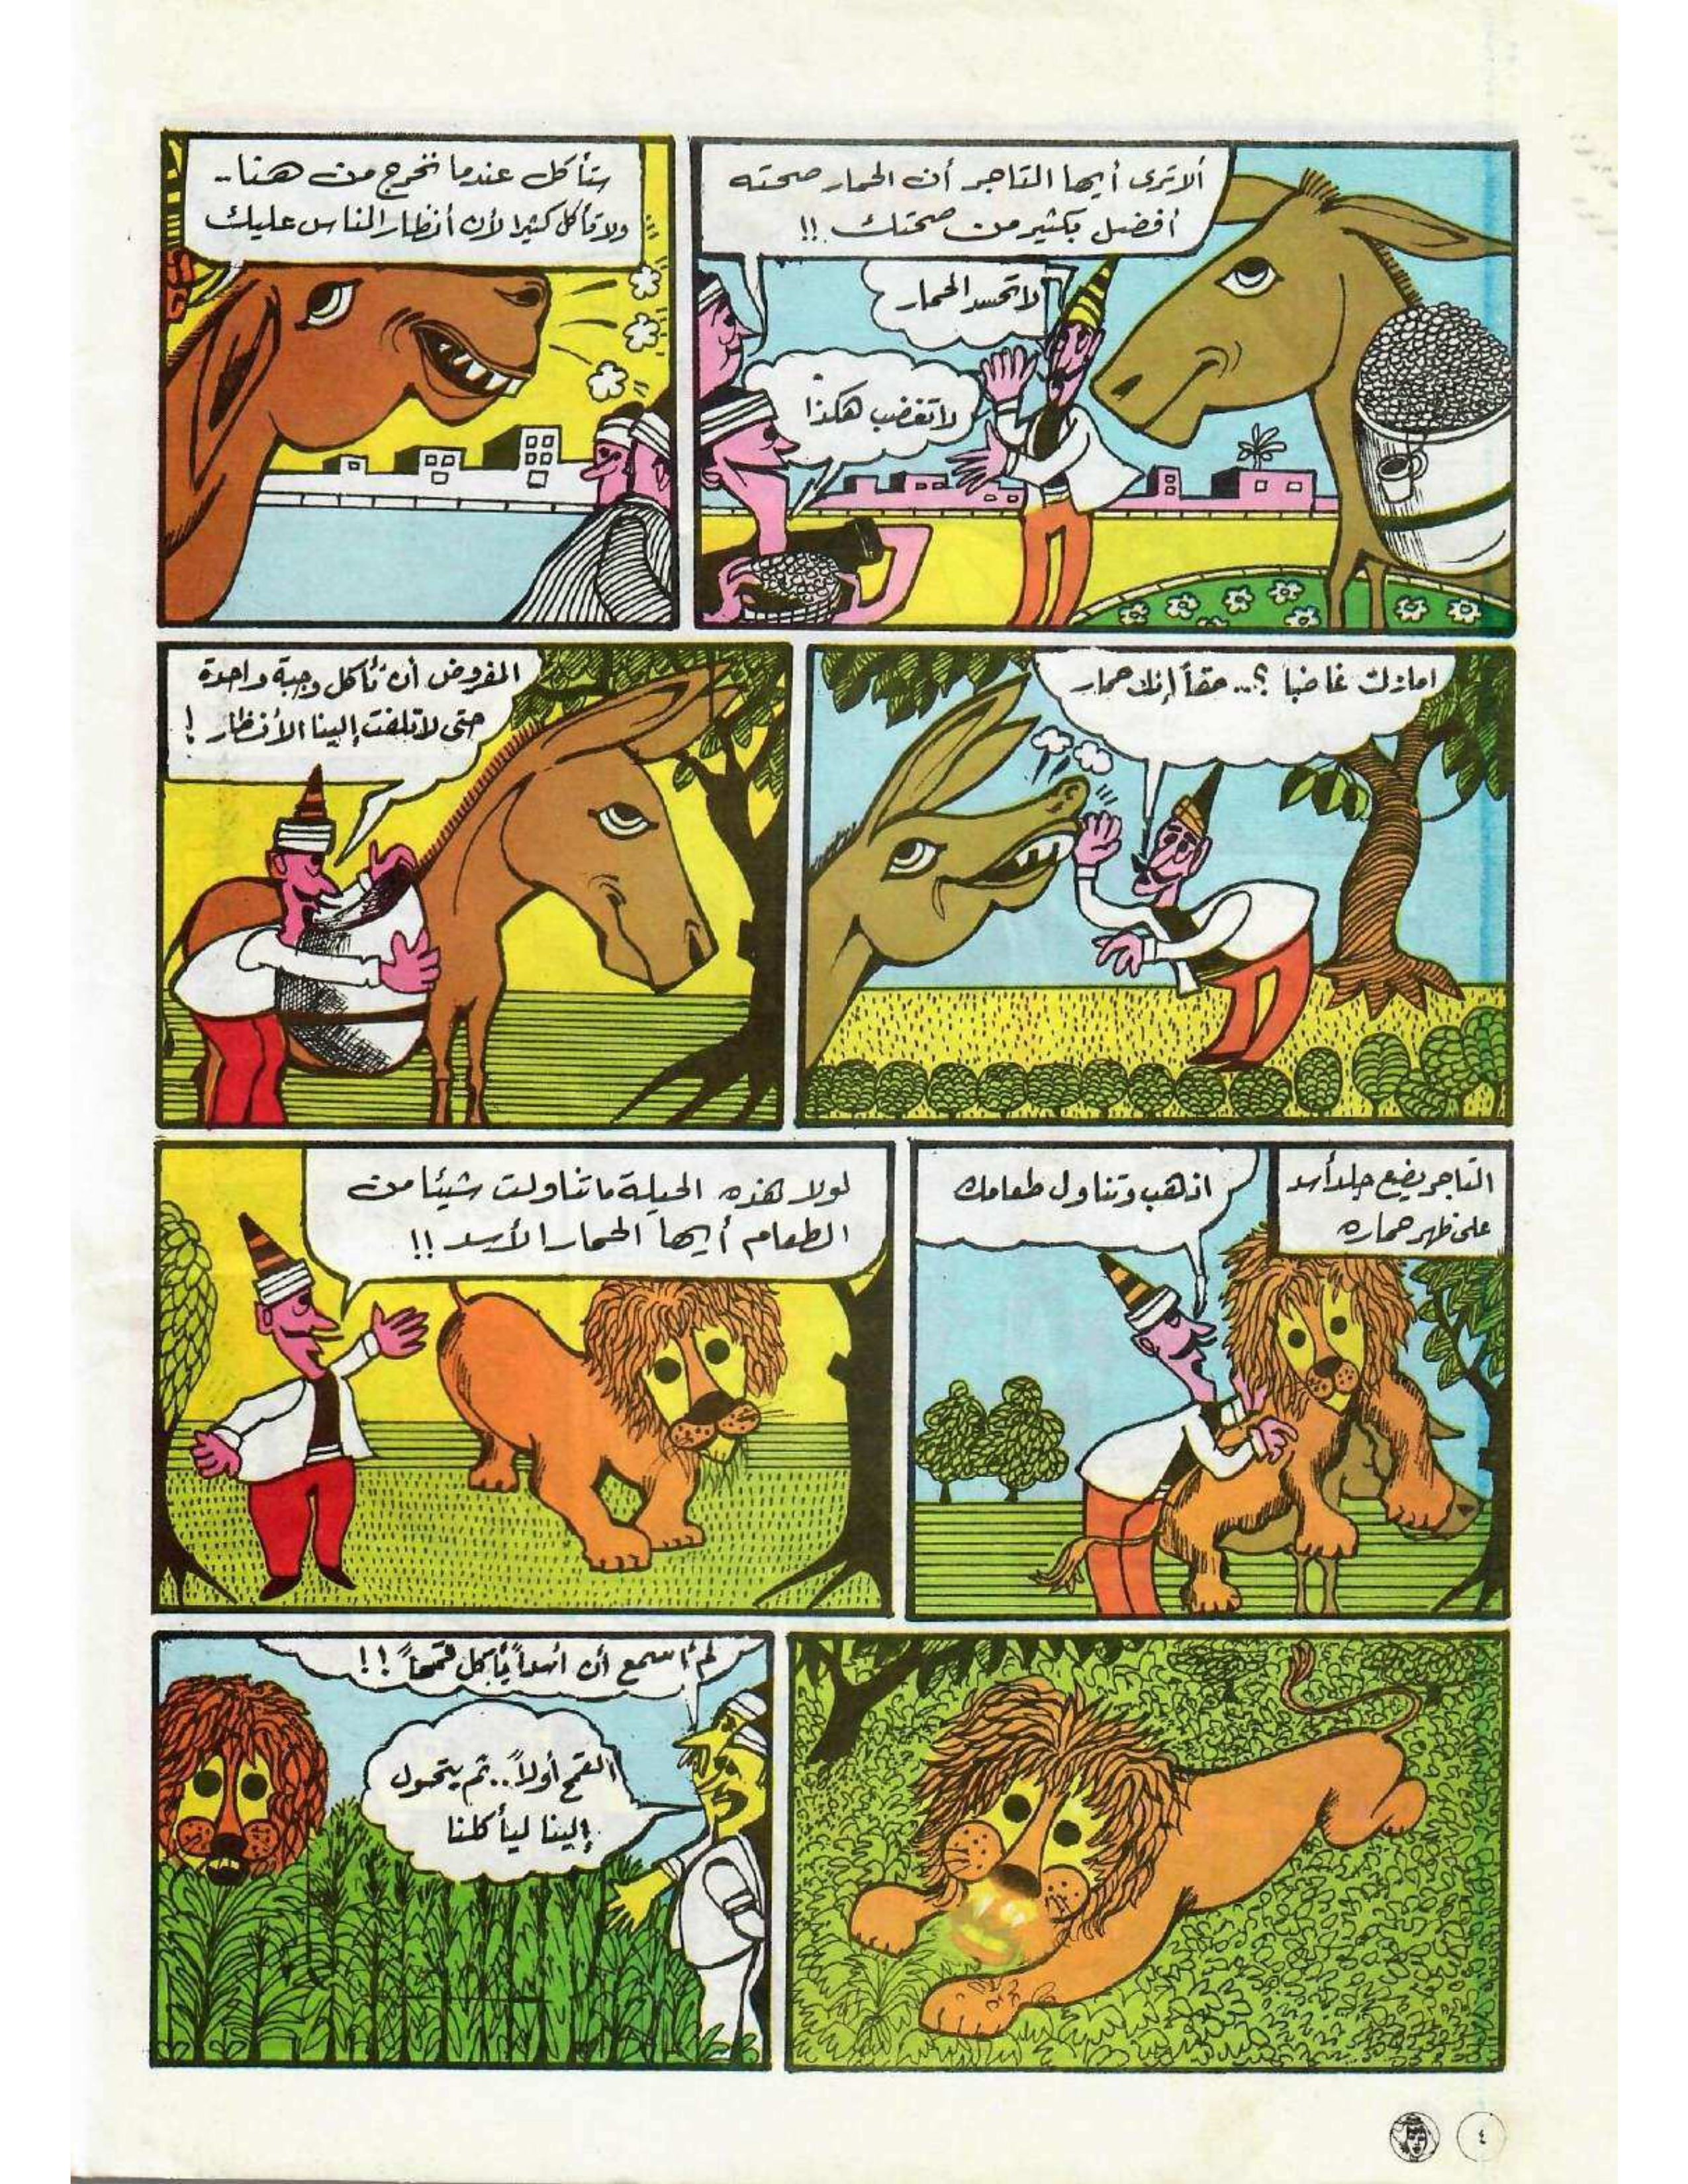 ألا ترى أيها التاجر أن الحمار صحته
أفضل بكثير من صحتك !!
لا تحسد الحمار
لا تغضب هكذا
ستأكل عندما نخرج من هنا..
ولا تأكل كثيرا لأن أنظار الناس عليك
امازلت غاضبا ؟.. حقاً إنك حمار
المفروض أن تأكل وجبة واحدة
حتى لا تلفت إلينا الأنظار !
التاجر يضع جلد أسد
على ظهر حماره
اذهب وتناول طعامك
لولا هذه الحيلة ما تناولت شيئا من
الطعام أيها الحمار الأسد !!
لم أسمع أن أسداً يأكل قمحاً !!
القمح أولاً.. ثم يتحول
إلينا ليأكلنا
٤